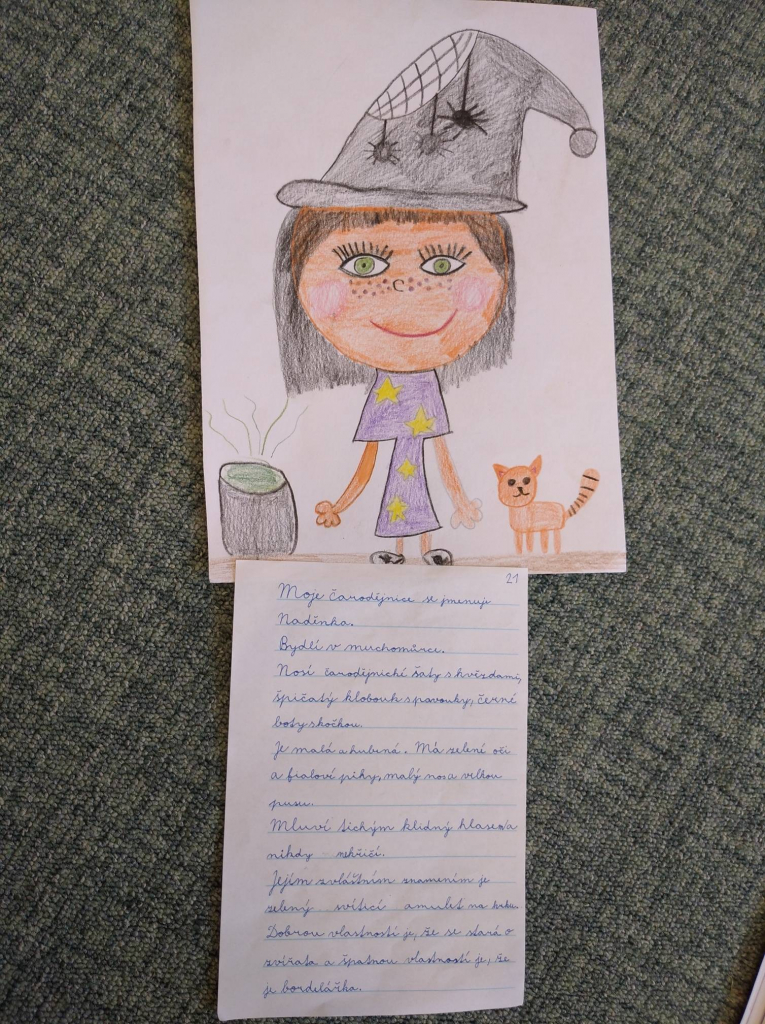 21
Moje čarodějnice se jmenuje
Nadínka.
Bydlí v muchomůrce.
Nosí čarodějnické šaty s hvězdami,
špičatý klobouk s pavouky, černé
boty s kočkou.
Je malá a hubená. Má zelené oči
a fialové pihy, malý nos a velkou
pusu.
Mluví tichým klidný hlasem a
nikdy nekřičí.
Jejím zvláštním znamením je
zelený svíticí amulet na krku.
Dobrou vlastností je, že se stará o
zvířata a špatnou vlastností je, že
je bordelářka.